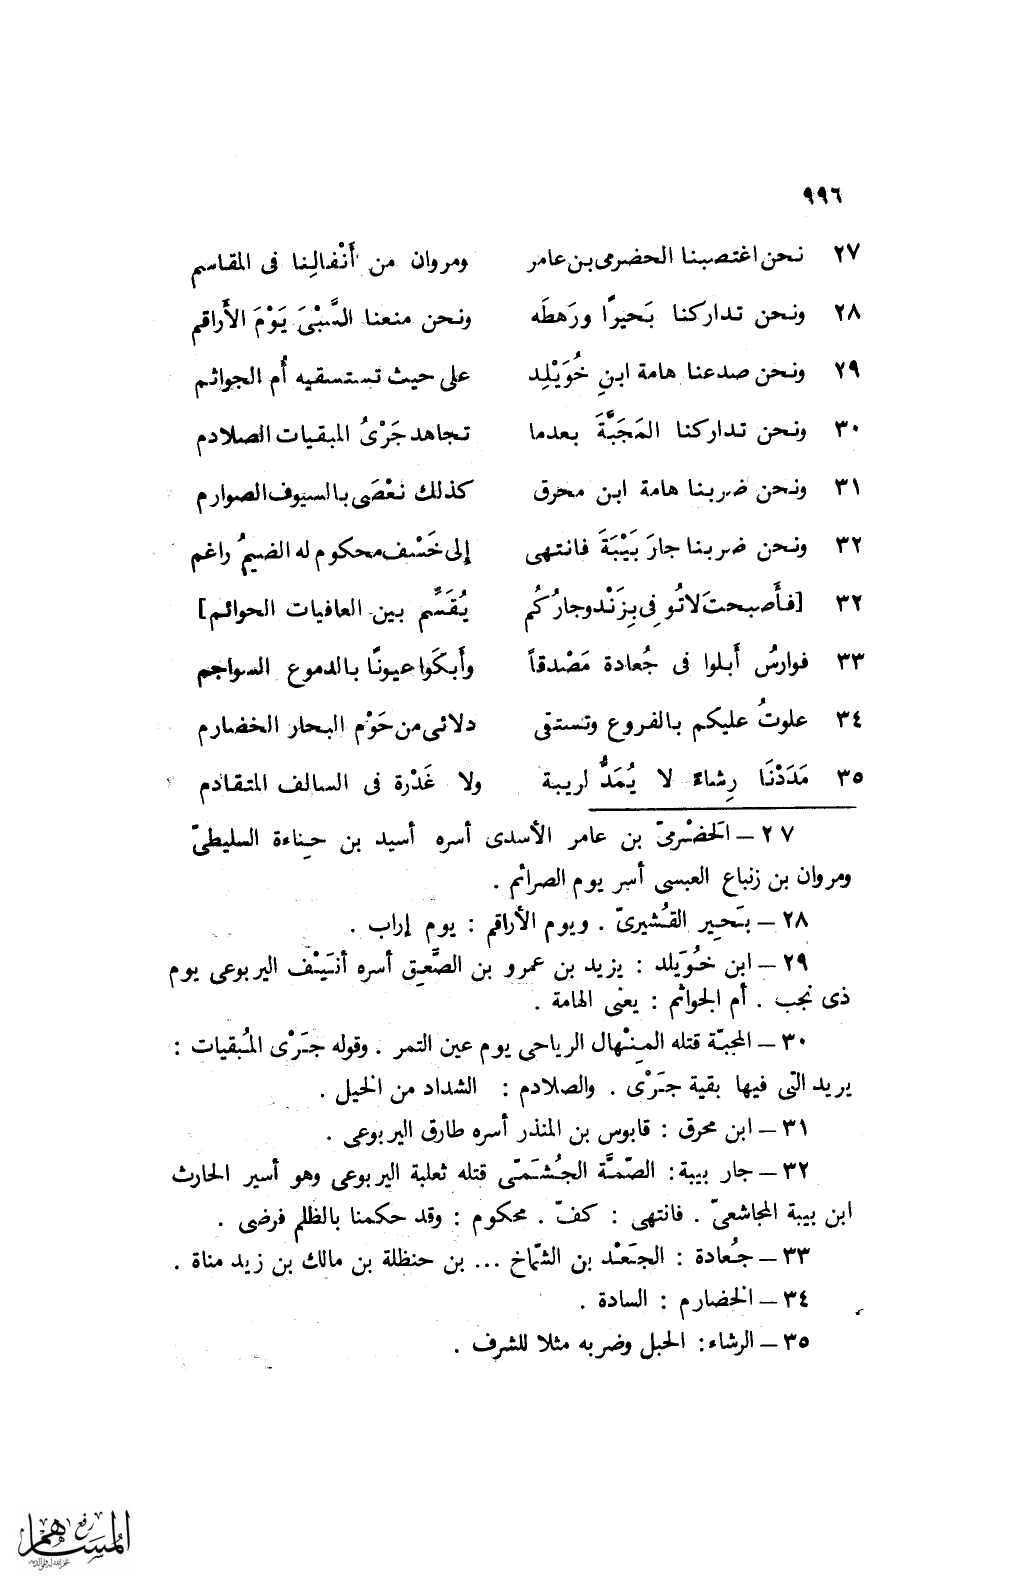 ٩٩٦
٢٧ نحن اغتصبنا الحضرمى بن عامر ومروان من أَنْفالِنا فى المقاسم
٢٨ ونحن تداركنا بَحيرًا ورَهطَه ونحن منعنا السَّبْىَ يَوْمَ الأَراقم
٢٩ ونحن صدعنا هامة ابنِ خُوَيْلِد على حيث تستسقيه أُم الجواثم
٣٠ ونحن تداركنا المَجَبَّةَ بعدما تجاهد جَرْىُ المبقيات الصلادم
٣١ ونحن ضربنا هامة ابن محرق كذلك نعْصَى بالسيوف الصوارم
٣٢ ونحن ضربنا جارَ بَيْبَةَ فانتهى إلى خَسْف محكوم له الضيمُ راغم
٣٢ [فأَصبحتَ لاتُو فِى بِزَنْد وجارُكُم يُقَسَّم بين العافيات الحوائم]
٣٣ فوارسُ أَبلوا فى جُعادة مَصْدقاً وأَبكَوا عيونًا بالدموع السواجم
٣٤ علوتُ عليكم بالفروع وتستقى دلائى من حَوْم البحار الخضارم
٣٥ مَدَدْنَا رِشاءً لا يُمَدُّ لريبة ولا غَدْرة فى السالف المتقادم
٢٧ – الحَضْرمىّ بن عامر الأسدى أسره أسيد بن حِناءة السليطىّ
ومروان بن زنباع العبسى أسر يوم الصرائم .
٢٨ – بَحِير القُشيرىّ . ويوم الأراقم : يوم إراب .
٢٩ – ابن خُوَيلد : يزيد بن عمرو بن الصَّعِق أسره أنَيْف اليربوعى يوم
ذى نجب . أم الجواثم : يعنى الهامة .
٣٠ – المجبّة قتله المِنْهال الرياحى يوم عين التمر . وقوله جَرْى المُبقيات :
يريد التى فيها بقية جَرْى . والصلادم : الشداد من الخيل .
٣١ – ابن محرق : قابوس بن المنذر أسره طارق اليربوعى .
٣٢ – جار بيبة : الصّمَّة الجُشَمَىّ قتله ثعلبة اليربوعى وهو أسير الحارث
ابن بيبة المجاشعىّ . فانتهى : كفّ . محكوم : وقد حكمنا بالظلم فرضى .
٣٣ – جُعادة : الجَعْد بن الشّماخ ... بن حنظلة بن مالك بن زيد مناة .
٣٤ – الخضارم : السادة .
٣٥ – الرشاء : الحبل وضربه مثلا للشرف .
رفع
المساهم